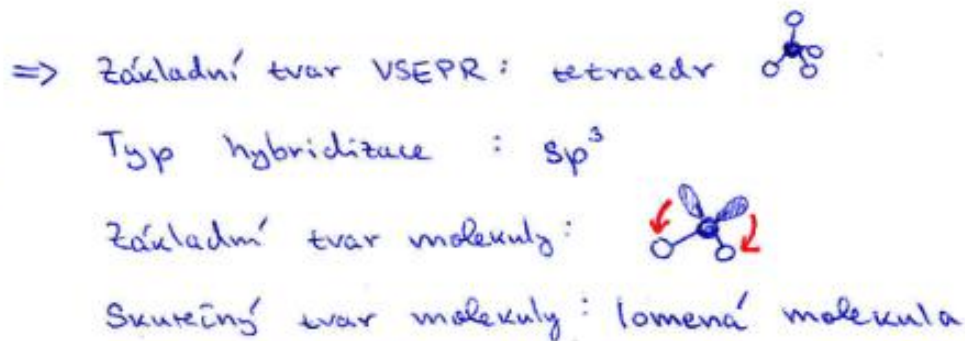 => Základní tvar VSEPR: tetraedr
Typ hybridizace : sp³
Základní tvar molekuly:
Skutečný tvar molekuly: lomená molekula